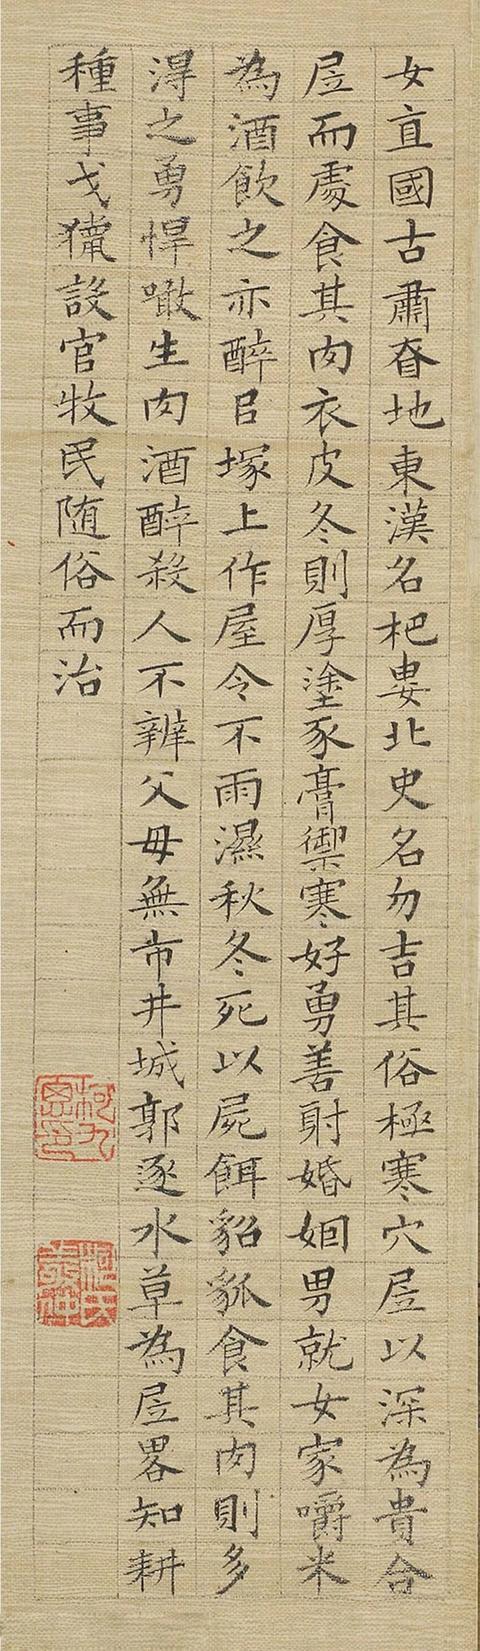 女直國古肅昚地東漢名杷婁北史名勿吉其俗極寒穴㞐以深為貴合
㞐而處食其肉衣皮冬則厚塗豕膏禦寒好勇善射婚姻男就女家嚼米
為酒飲之亦醉㠯塚上作屋令不雨濕秋冬死以屍餌貂狐食其肉則多
得之勇悍噉生肉酒醉殺人不辨父母無市井城郭逐水草為㞐畧知耕
種事弋獵設官牧民随俗而治
柯九思印